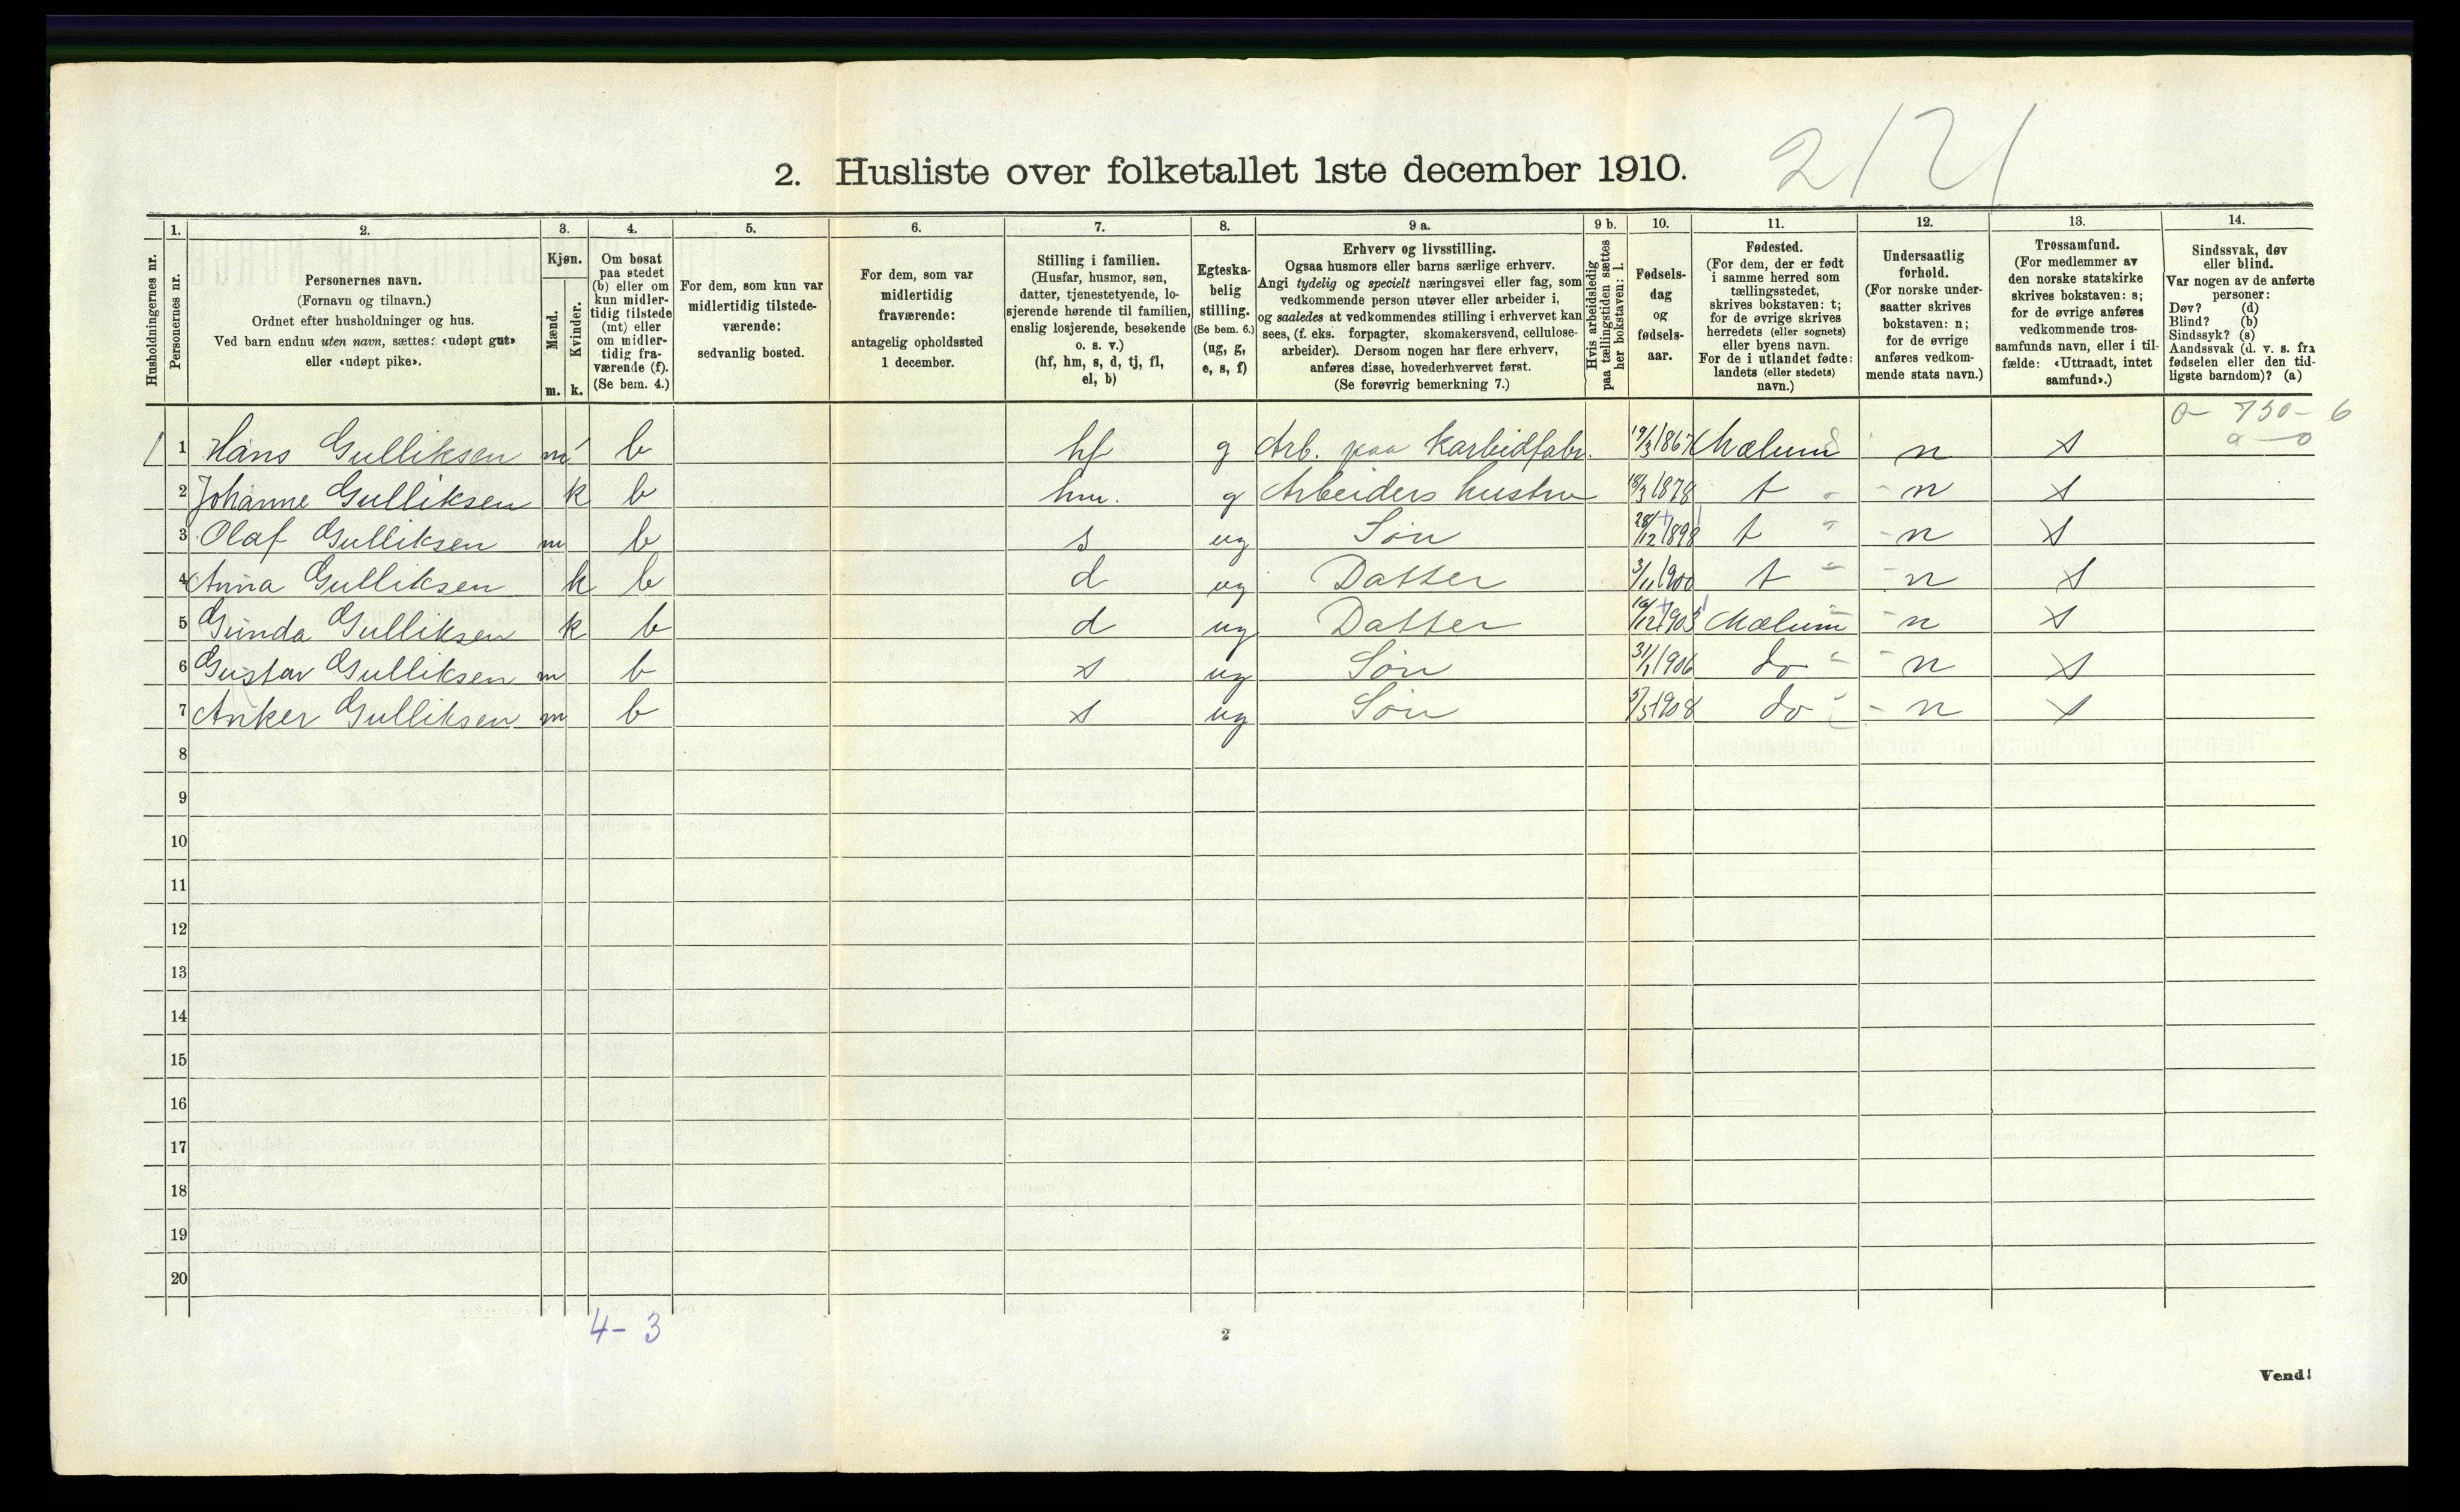 2. Husliste over folketallet 1ste december 1910.
1. 2. 3. 4. 5. 6. 7. 8. 9 a. 9 b. 10. 11. 12. 13. 14.
Husholdningernes nr.
Personernes nr.
Personernes navn.
(Fornavn og tilnavn.)
Ordnet efter husholdninger og hus.
Ved barn endnu uten navn, sættes: «udøpt gut»
eller «udøpt pike».
Kjøn.
Mænd.
Kvinder.
m. k.
Om bosat
paa stedet
(b) eller om
kun midler-
tidig tilstede
(mt) eller
om midler-
tidig fra-
værende (f).
(Se bem. 4.)
For dem, som kun var
midlertidig tilstede-
værende:
sedvanlig bosted.
For dem, som var
midlertidig
fraværende:
antagelig opholdssted
1 december.
Stilling i familien.
(Husfar, husmor, søn,
datter, tjenestetyende, lo-
sjerende hørende til familien,
enslig losjerende, besøkende
o. s. v.)
(hf, hm, s, d, tj, fl,
el, b)
Egteska-
belig
stilling.
(Se bem. 6.)
(ug, g,
e, s, f)
Erhverv og livsstilling.
Ogsaa husmors eller barns særlige erhverv.
Angi tydelig og specielt næringsvei eller fag, som
vedkommende person utøver eller arbeider i,
og saaledes at vedkommendes stilling i erhvervet kan
sees, (f. eks. forpagter, skomakersvend, cellulose-
arbeider). Dersom nogen har flere erhverv,
anføres disse, hovederhvervet først.
(Se forøvrig bemerkning 7.)
Hvis arbeidsledig
paa tællingstiden sættes
her bokstaven: l.
Fødsels-
dag
og
fødsels-
aar.
Fødested.
(For dem, der er født
i samme herred som
tællingsstedet,
skrives bokstaven: t;
for de øvrige skrives
herredets (eller sognets)
eller byens navn.
For de i utlandet fødte:
landets (eller stedets)
navn.)
Undersaatlig
forhold.
(For norske under-
saatter skrives
bokstaven: n;
for de øvrige
anføres vedkom-
mende stats navn.)
Trossamfund.
(For medlemmer av
den norske statskirke
skrives bokstaven: s;
for de øvrige anføres
vedkommende tros-
samfunds navn, eller i til-
fælde: «Uttraadt, intet
samfund».)
Sindssvak, døv
eller blind.
Var nogen av de anførte
personer:
Døv? (d)
Blind? (b)
Sindssyk? (s)
Aandssvak (d. v. s. fra
fødselen eller den tid-
ligste barndom)? (a)
0 - 730 - 6
0 - 0
1 1 Hans Gulliksen m b hf g Arb. paa Karbidfabr. 19/3 1867 Mælum n s
2 Johanne Gulliksen k b hm. g Arbeiders hustru 18/3 1878 t n s
3 Olaf Gulliksen m b s ug Søn 28/12 1898 t n s
4 Anna Gulliksen k b d ug Datter 3/11 1900 t n s
5 Gunda Gulliksen k b d ug Datter 12 1903 Mælum n s
6 Gustav Gulliksen m b s ug Søn 31/1 1906 do n s
7 Anker Gulliksen m b s ug Søn 5/5 1908 do n s
8
9
10
11
12
13
14
15
16
17
18
19
20
4 - 3
2
Vend!